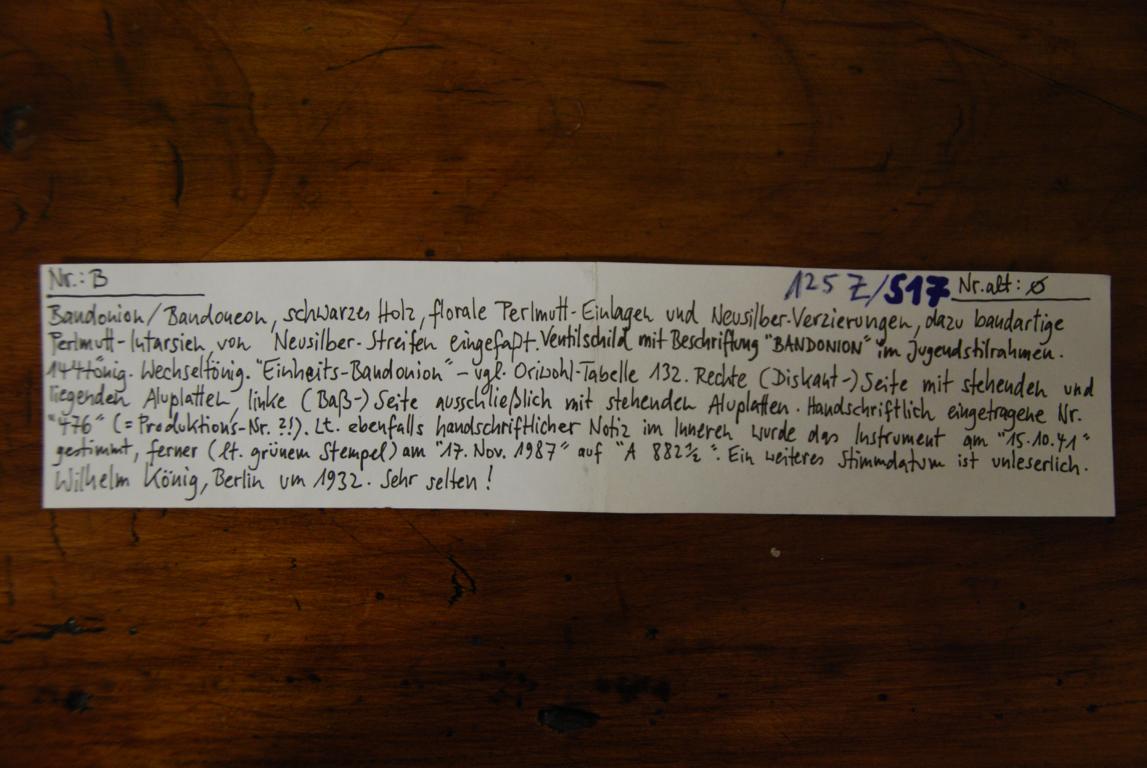 Nr.: B 125 Z/S17 Nr.alt: ø
Bandonion/Bandoneon, schwarzes Holz, florale Perlmutt-Einlagen und Neusilber-Verzierungen, dazu bandartige
Perlmutt-Intarsien, von Neusilber-Streifen eingefaßt. Ventilschild mit Beschriftung "BANDONION" im Jugendstilrahmen.
144tönig. Wechseltönig. "Einheits-Bandonion" - vgl. Oriwohl-Tabelle 132. Rechte (Diskant-) Seite mit stehenden und
liegenden Aluplatten, linke (Baß-) Seite ausschließlich mit stehenden Aluplatten. Handschriftlich eingetragene Nr.
"476" (= Produktions-Nr. ?!). Lt. ebenfalls handschriftlicher Notiz im Inneren wurde das Instrument am "15.10.41"
gestimmt, ferner (lt. grünem Stempel) am "17. Nov. 1987" auf "A 882 ½". Ein weiteres Stimmdatum ist unleserlich.
Wilhelm König, Berlin um 1932. Sehr selten!